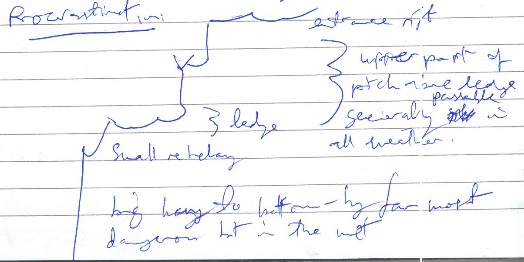 entrance rift
upper part of
pitch ledge
generally passable in
all weather.
} ledge
Small rebelay
big hang to bottom - by far most
dangerous bit in the wet